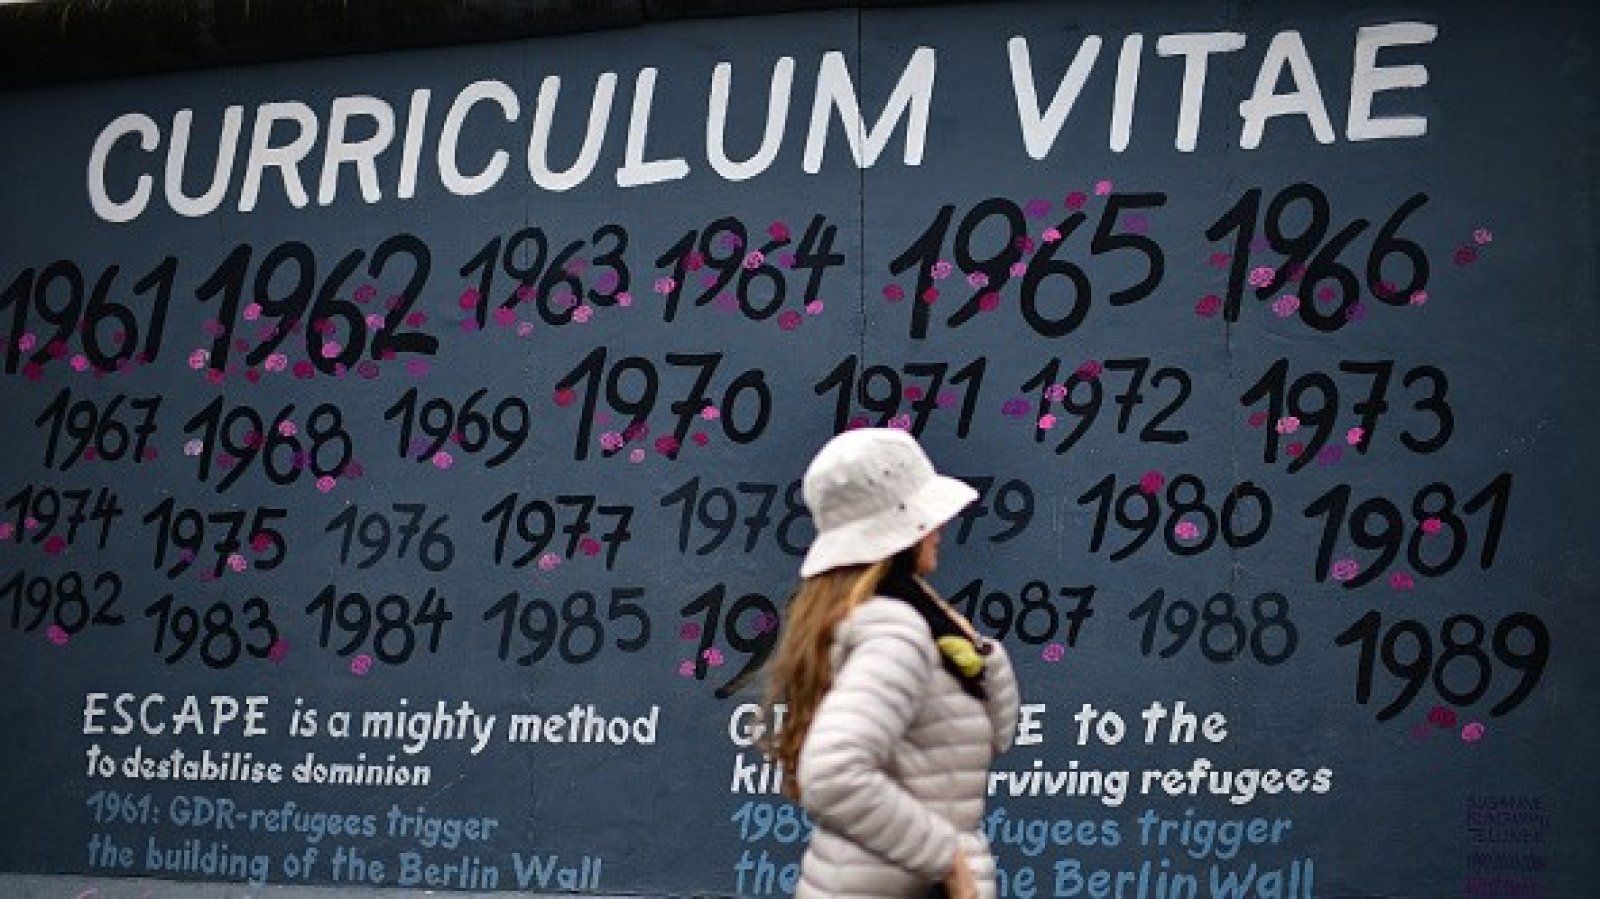 CURRICULUM VITAE
1961 1962 1963 1964 1965 1966
1967 1968 1969 1970 1971 1972 1973
1974 1975 1976 1977 1978 79 1980 1981
1982 1983 1984 1985 19 1987 1988 1989
ESCAPE is a mighty method
to destabilise dominion
1961: GDR-refugees trigger
the building of the Berlin Wall
G E to the
ki rviving refugees
198 fugees trigger
the he Berlin Wall
SUSANNE